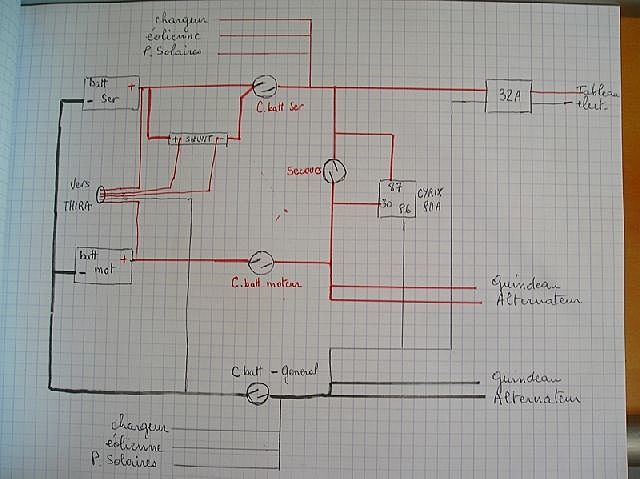 chargeur
éolienne
P. Solaires
batt +
- Ser
C. batt Ser
32A
Tableau
élect.
+ SHUNT -
Secours
87
30 86
CYRIX
Vers
THIRA
batt +
- mot
C. batt moteur
Guindeau
Alternateur
C batt - general
Guindeau
Alternateur
chargeur
éolienne
P. Solaires